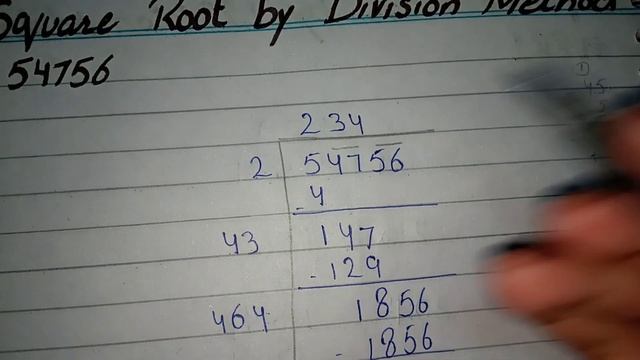 Square Root by Division Method
54756
234
2 54756
- 4
43 147
- 129
464 1856
- 1856